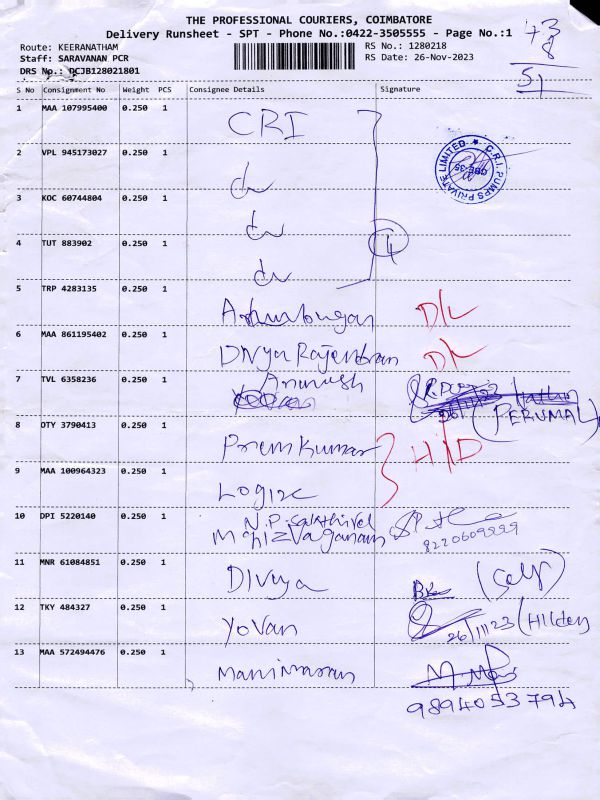 THE PROFESSIONAL COURIERS, COIMBATORE
Delivery Runsheet - SPT - Phone No.:0422-3505555 - Page No.:1
43
8
51
Route: KEERANATHAM RS No.: 1280218
Staff: SARAVANAN PCR RS Date: 26-Nov-2023
DRS No.: DCJB128021801
S No Consignment No Weight PCS Consignee Details Signature
1 MAA 107995400 0.250 1 CRI
C.R.I. PUMPS PRIVATE LIMITED ★
CBE-35
2 VPL 945173027 0.250 1 du
3 KOC 60744804 0.250 1 du
4 TUT 883902 0.250 1 du
4
5 TRP 4283135 0.250 1 D/L
6 MAA 861195402 0.250 1 Divya Rajendran D/L
7 TVL 6358236 0.250 1
(PERUMAL)
8 OTY 3790413 0.250 1 Prem Kumar H/D
9 MAA 100964323 0.250 1
10 DPI 5220140 0.250 1 N.P. Sakthivel
8220609999
11 MNR 61084851 0.250 1 Divya (Self)
12 TKY 484327 0.250 1 Yovan
26/11/23 (Hilden
13 MAA 572494476 0.250 1 Manimaran
9894053794